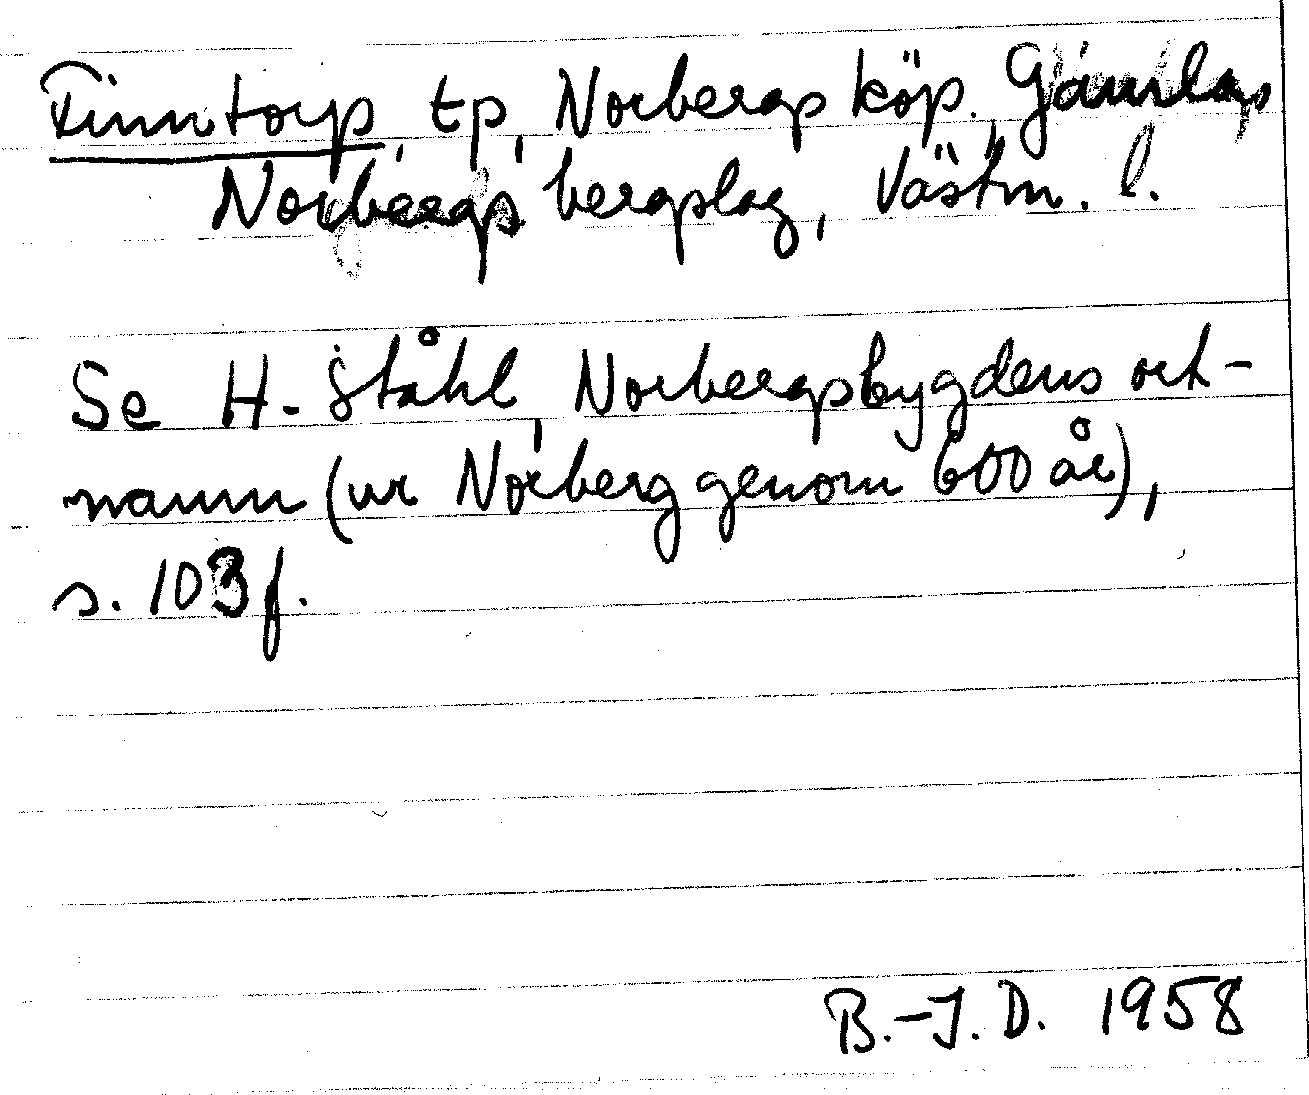 Finntorp, tp, Norbergs köp., Gamla
Norbergs bergslag, Västm. l.
Se H. Ståhl, Norbergsbygdens ort-
namn (ur Norberg genom 600 år),
s. 103 f.
B.-I. D. 1958